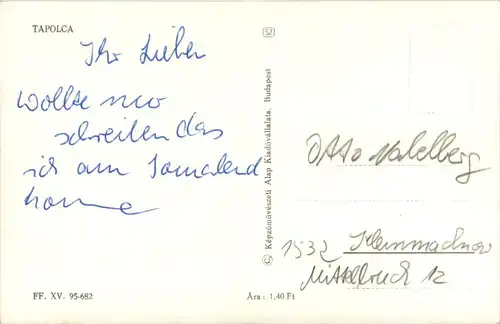 TAPOLCA
Ihr Lieben
wollte nur
schreiben das
ich am Sonnabend
komme
52
Képzőművészeti Alap Kiadóvállalata, Budapest
Otto
1532 Kleinmachnow
12
FF. XV. 95-682
Ára: 1,40 Ft